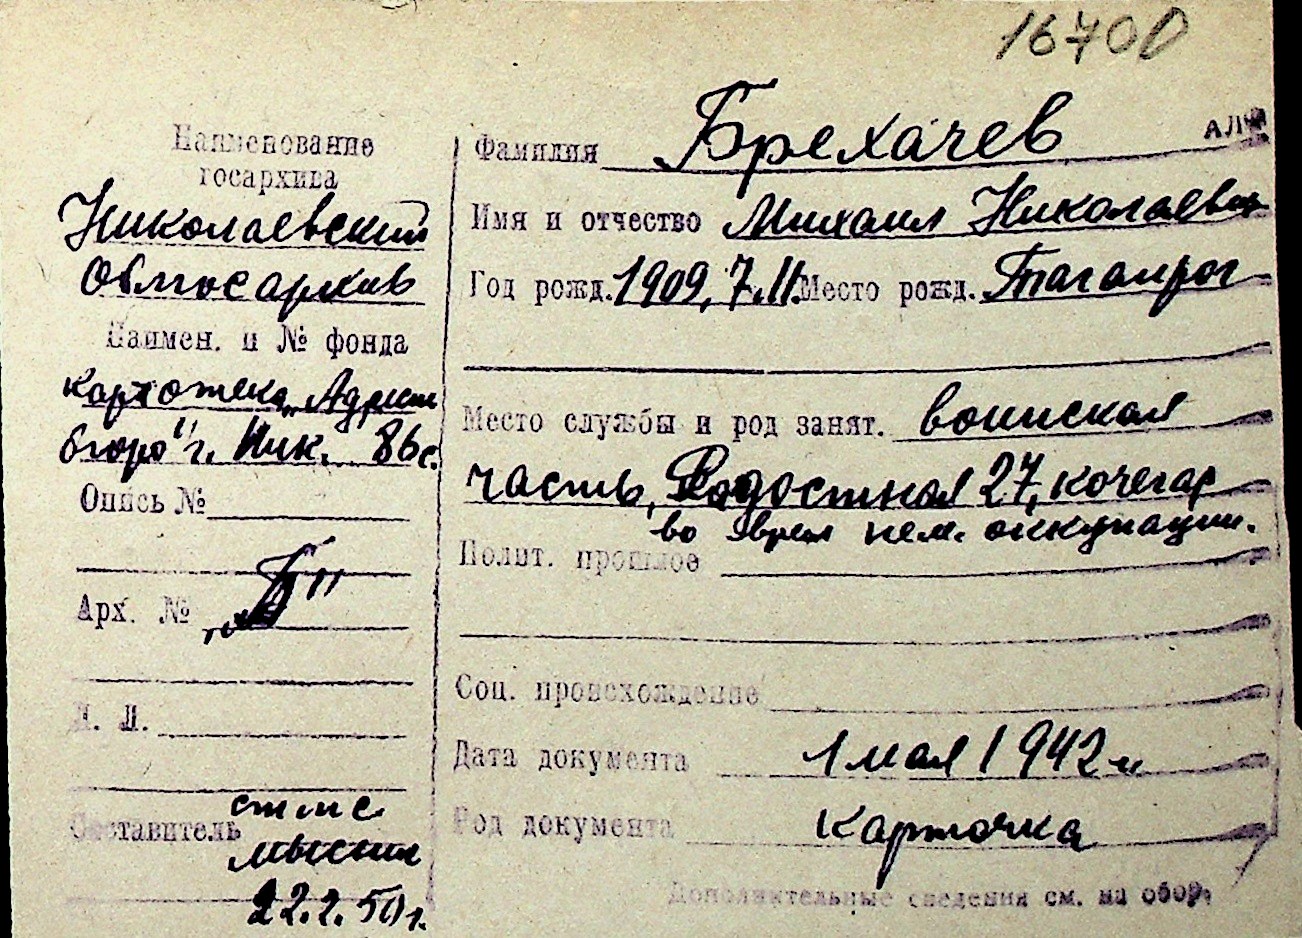 16700
Наименование
госархива
Николаевский
облгосархив
Наимен. и № фонда
картотека „Адресн
бюро" г. Ник. 86с.
Опись №
Арх. № „Б"
Л. Л.
Составитель
мысник
22.2.50 г.
Фамилия Брехачев
Имя и отчество Михаил Николаевич
Год рожд. 1909, 7.II. Место рожд. Таганрог
Место службы и род занят. воинская
часть, Радостная 27, кочегар
во время нем. оккупации.
Полит. прошлое
Соц. происхождение
Дата документа 1 мая 1942 г.
Род документа карточка
Дополнительные сведения см. на обор.